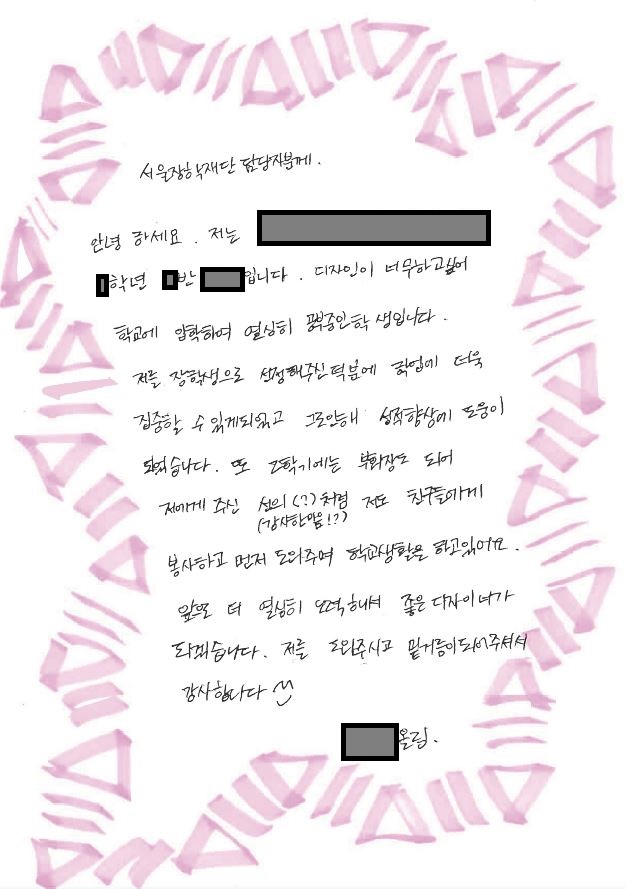 서울장학재단 담당자분께.
안녕 하세요. 저는
학년 반 입니다. 디자인이 너무하고싶어
학교에 입학하여 열심히 공부중인학생입니다.
저를 장학생으로 선정해주신덕분에 학업에 더욱
집중할 수 있게되었고 그로인해 성적향상에 도움이
되었습니다. 또 2학기에는 부회장도 되어
저에게 주신 선의(?)처럼 저도 친구들에게
(감사한맘!?)
봉사하고 먼저 도와주며 학교생활을 하고있어요.
앞으로 더 열심히 노력해서 좋은 디자이너가
되겠습니다. 저를 도와주시고 밑거름이되어주셔서
감사합니다
올림.